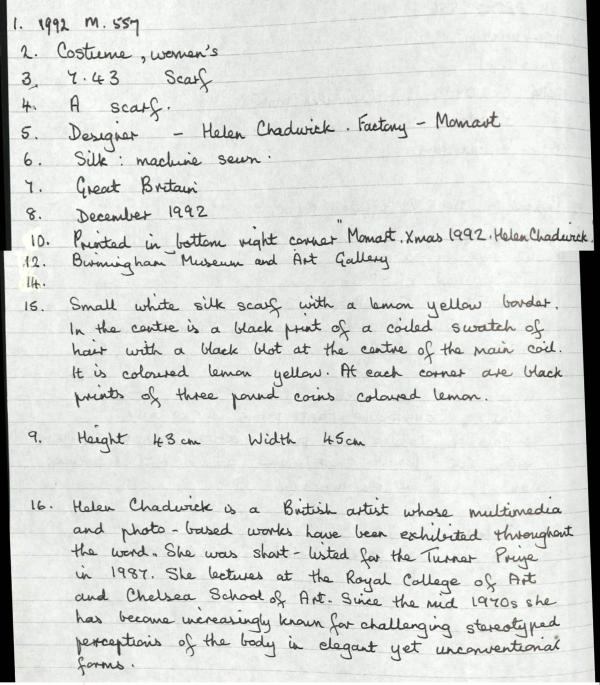 1. 1992 M.557
2. Costume, women's
3. 7.43 Scarf
4. A scarf.
5. Designer - Helen Chadwick. Factory - Momart
6. Silk: machine sewn.
7. Great Britain
8. December 1992
10. Printed in bottom right corner "Momart. Xmas 1992. Helen Chadwick.
12. Birmingham Museum and Art Gallery
14.
15. Small white silk scarf with a lemon yellow border.
In the centre is a black print of a coiled swatch of
hair with a black blot at the centre of the main coil.
It is coloured lemon yellow. At each corner are black
prints of three pound coins coloured lemon.
9. Height 43cm Width 45cm
16. Helen Chadwick is a British artist whose multimedia
and photo-based works have been exhibited throughout
the word. She was short-listed for the Turner Priye
in 1987. She lectures at the Royal College of Art
and Chelsea School of Art. Since the mid 1970s she
has become increasingly known for challenging stereotyped
perceptions of the body in elegant yet unconventional
forms.